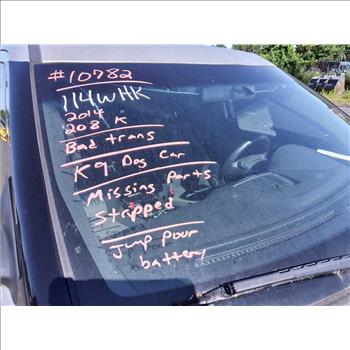 #10782
114WHK
2014
208 K
Bad trans
K9 Dog Car
Missing Parts
Stripped
Jump pour
battery